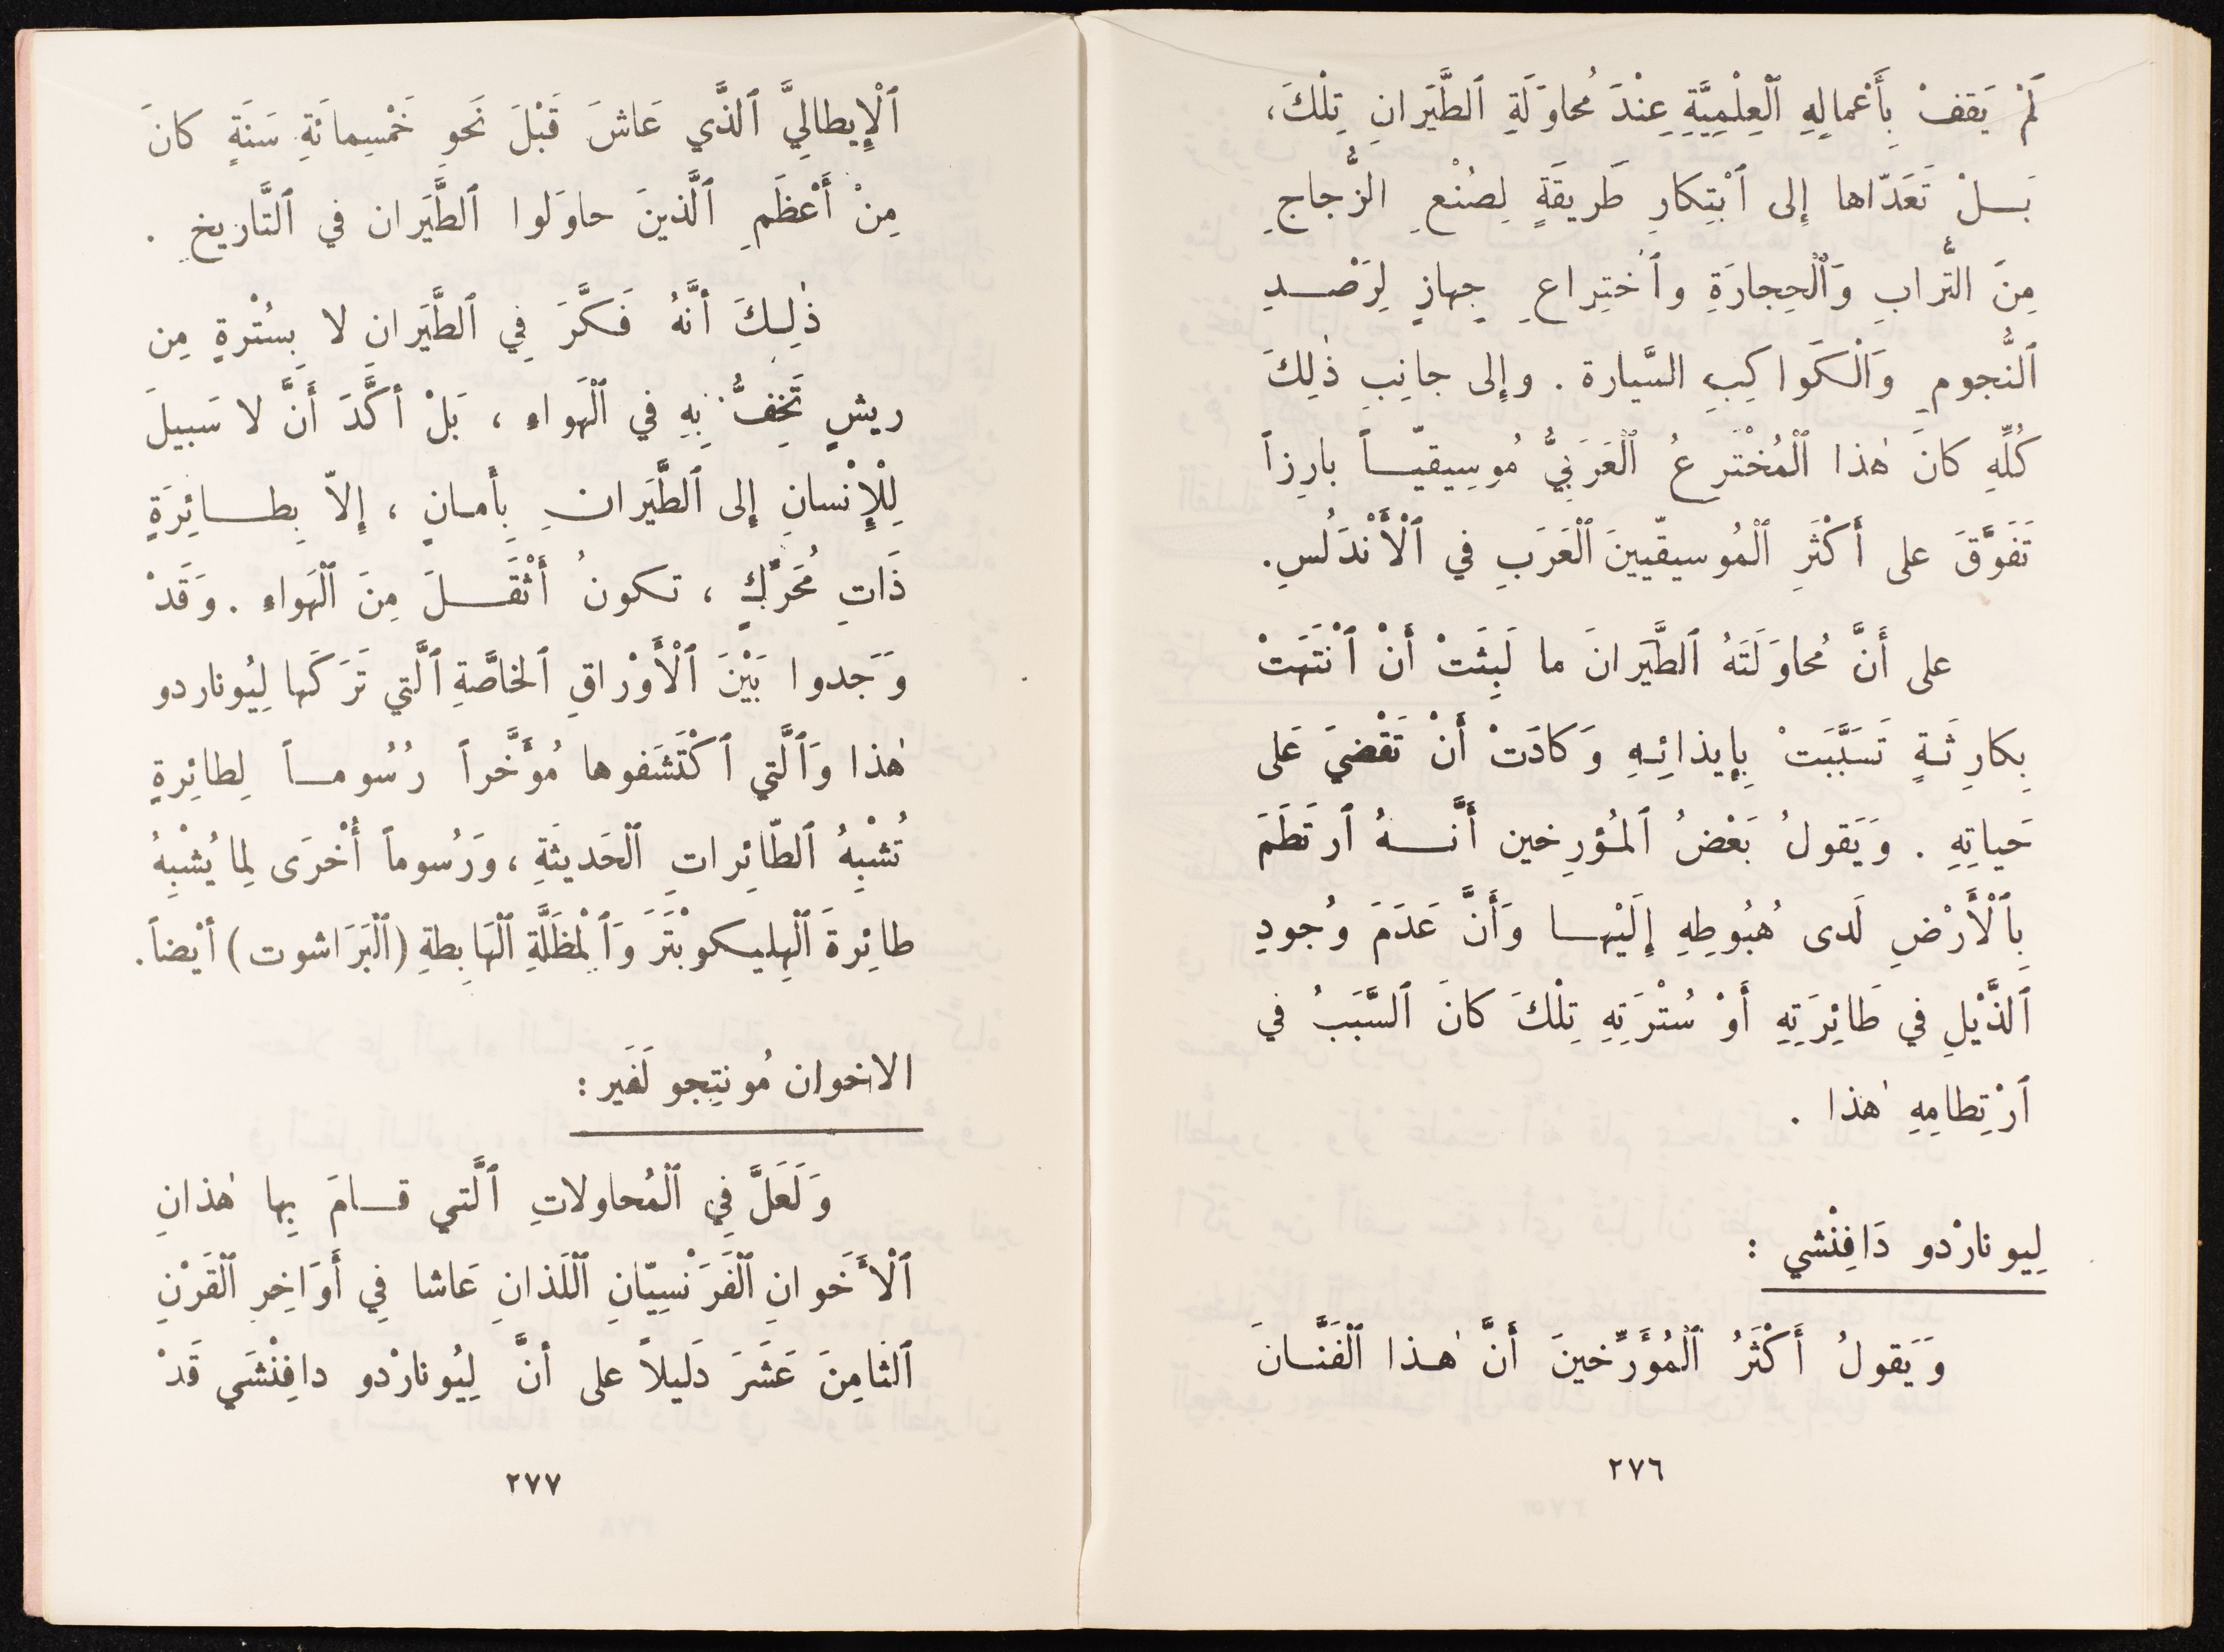 لَمْ يَقِفْ بِأَعْمالِهِ ٱلْعِلْمِيَّةِ عِنْدَ مُحاوَلَةِ ٱلطَّيَرانِ تِلْكَ،
بَـلْ تَعَدّاها إِلى ٱبْتِكارِ طَريقَةٍ لِصُنْعِ الزُّجاجِ
مِنَ التُّرابِ وَٱلْحِجارَةِ وٱخْتِراعِ جِهازٍ لِرَصْدِ
ٱلنُّجومِ وَالْكَواكِبِ السَّيارة . وإِلى جانِبِ ذٰلِكَ
كُلِّهِ كانَ هٰذا ٱلْمُخْتَرِعُ ٱلْعَرَبِيُّ مُوسِيقيّـاً بارِزاً
تَفَوَّقَ على أَكْثَرِ ٱلْمُوسيقّيينَ ٱلْعَرَبِ في ٱلْأَنْدَلُسِ.
على أَنَّ مُحاوَلَتَهُ ٱلطَّيَرانَ ما لَبِثَتْ أَنْ ٱنْتَهَتْ
بِكارِثَـةٍ تَسَبَّبَتْ بِإيذائِـهِ وَكادَتْ أَنْ تَقْضيَ عَلى
حَياتِهِ . وَيَقولُ بَعْضُ ٱلمُؤرِخين أَنَّـهُ ٱرتَطَمَ
بِٱلْأَرْضِ لَدى هُبُوطِهِ إِلَيْهـا وَأَنَّ عَدَمَ وُجودِ
ٱلذَّيْلِ في طَائِرَتِهِ أَوْ سُتْرَتِهِ تِلْكَ كانَ ٱلسَّبَبُ في
ٱرْتِطامِهِ هٰذا .
لِيونارْدو دَافِنْشي :
وَيَقولُ أَكْثَرُ ٱلْمُؤَرِّخينَ أَنَّ هٰـذا ٱلْفَنَّـانَ
٢٧٦
ٱلْإِيطالِيَّ ٱلذَّي عَاشَ قَبْلَ نَحوِ خَمْسِمائَةِ سَنَةٍ كانَ
مِنْ أَعْظَمِ ٱلَّذينَ حاوَلوا ٱلطَّيَران في ٱلتَّاريخِ .
ذٰلِـكَ أنَّهُ فَـكَّرَ فِي ٱلطَّيَرانِ لا بِسُتْرةٍ مِن
ريشٍ تَخِفُّ بِهِ في ٱلْهَواءِ ، بَلْ أكَّدَ أَنَّ لا سَبيلَ
لِلْإِنْسانِ إِلى ٱلطَّيَرانِ بِأَمـانٍ ، إِلاّ بِطـائِرَةٍ
ذَاتِ مُحَرِّكٍ ، تـكونُ أَثْقَـلَ مِنَ ٱلْهَواءِ . وَقَدْ
وَجَدوا بَيْنَ ٱلْأَوْراقِ ٱلخاصَّةِ ٱلَّتي تَرَكَها لِيُوناردو
هٰذا وَٱلَّتي ٱكْتَشَفوها مُؤَخَّراً رُسُومـاً لِطائِرةٍ
تُشْبِهُ ٱلطّائِراتِ ٱلْحَديثَةِ ، وَرُسُوماً أُخْرَى لِما يُشْبِهُ
طائِرةَ ٱلْهِليـكوبْتَرَ وَٱلْمِظَلَّةِ ٱلْهَابِطةِ (ٱلْبَرَاشوت) أيْضاً.
الاخوان مُونتِجو لَفَير :
وَلَعَلَّ فِي ٱلْمُحاولاتِ ٱلَّتي قـامَ بِها هٰذانِ
ٱلْأَخَوانِ ٱلْفَرَنْسِيّانِ ٱلْلَذانِ عَاشا فِي أَوَاخِرِ ٱلْقَرْنِ
ٱلثامِنَ عَشَرَ دَليلاً على أنَّ لِيُونارْدو دافِنْشَي قَدْ
٢٧٧